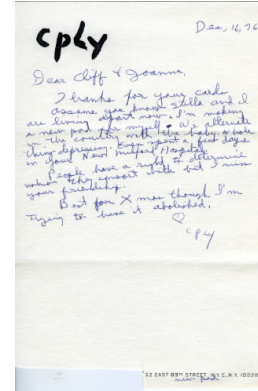 cply
Dec, 16, 76
Dear Cliff & Joanne,
Thanks for your card.
assume you know Stella and I
are living apart now. I'm making
a new pad for myself. We alternate
in the country with the baby. a whole
thing depressing. Even spent a few days
in your New Milford Hospital.
People have a right to determine
who they consort with but I miss
your friendship.
Best for X mas though I'm
trying to have it abolished.
♡
cply
52 EAST 89th STREET, N.Y.C. N.Y. 10028
new pad